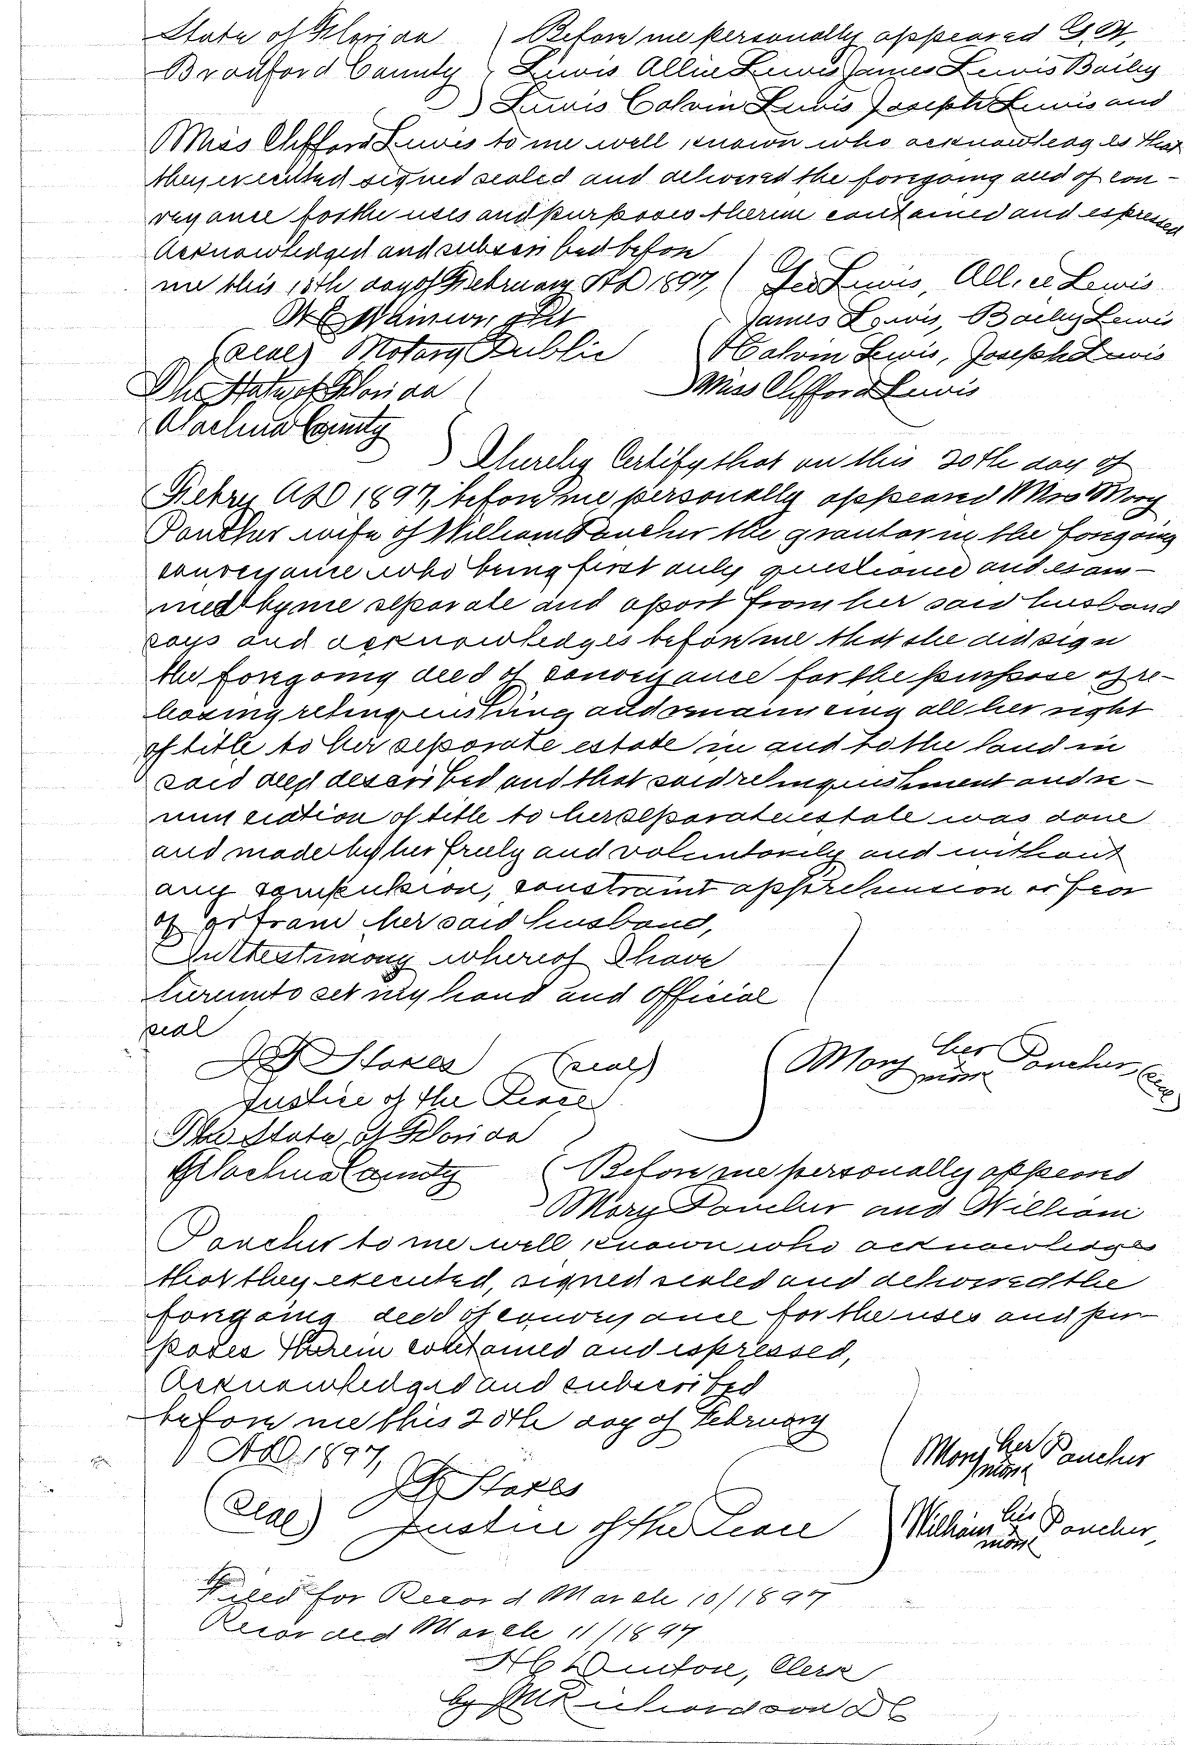 State of Florida ) Before me personally appeared G. W.
Bradford County ) Lewis Allie Lewis James Lewis Baily
) Lewis Calvin Lewis Joseph Lewis and
Miss Clifford Lewis to me well known who acknowledges that
they executed signed sealed and delivered the foregoing deed of con-
veyance for the uses and purposes therein contained and expressed
Acknowledged and subscribed before
me this 18th day of February AD 1897, ( Geo Lewis, Allice Lewis
W E Wainwright James Lewis, Baily Lewis
(seal) Notary Public Calvin Lewis, Joseph Lewis
The State of Florida Miss Clifford Lewis
Alachua County
I hereby Certify that on this 20th day of
Febry AD 1897, before me personally appeared Mrs Mary
Pancher wife of William Pancher the grantor in the foregoing
conveyance who being first duly questioned and exam-
ined by me separate and apart from her said husband
says and acknowledges before me that she did sign
the foregoing deed of conveyance for the purpose of re-
leasing relinquishing and renouncing all her right
of title to her separate estate in and to the land in
said deed described and that said relinquishment and re-
nunciation of title to her separate estate was done
and made by her freely and voluntarily and without
any compulsion, constraint apprehension or fear
of or from her said husband,
In testimony whereof I have
hereunto set my hand and official
seal
Stokes (seal) Mary her mark Pancher, (seal)
Justice of the Peace
The State of Florida
Alachua County ( Before me personally appeared
Mary Pancher and William
Pancher to me well known who acknowledges
that they executed, signed sealed and delivered the
foregoing deed of conveyance for the uses and pur-
poses therein contained and expressed,
Acknowledged and subscribed
before me this 20th day of February
AD 1897, Mary her mark Pancher
Stokes
(Seal) Justice of the Peace William his x mark Pancher,
Filed for Record March 10/1897
Recorded March 11/1897
H C Denton, Clerk
by Richardson D C